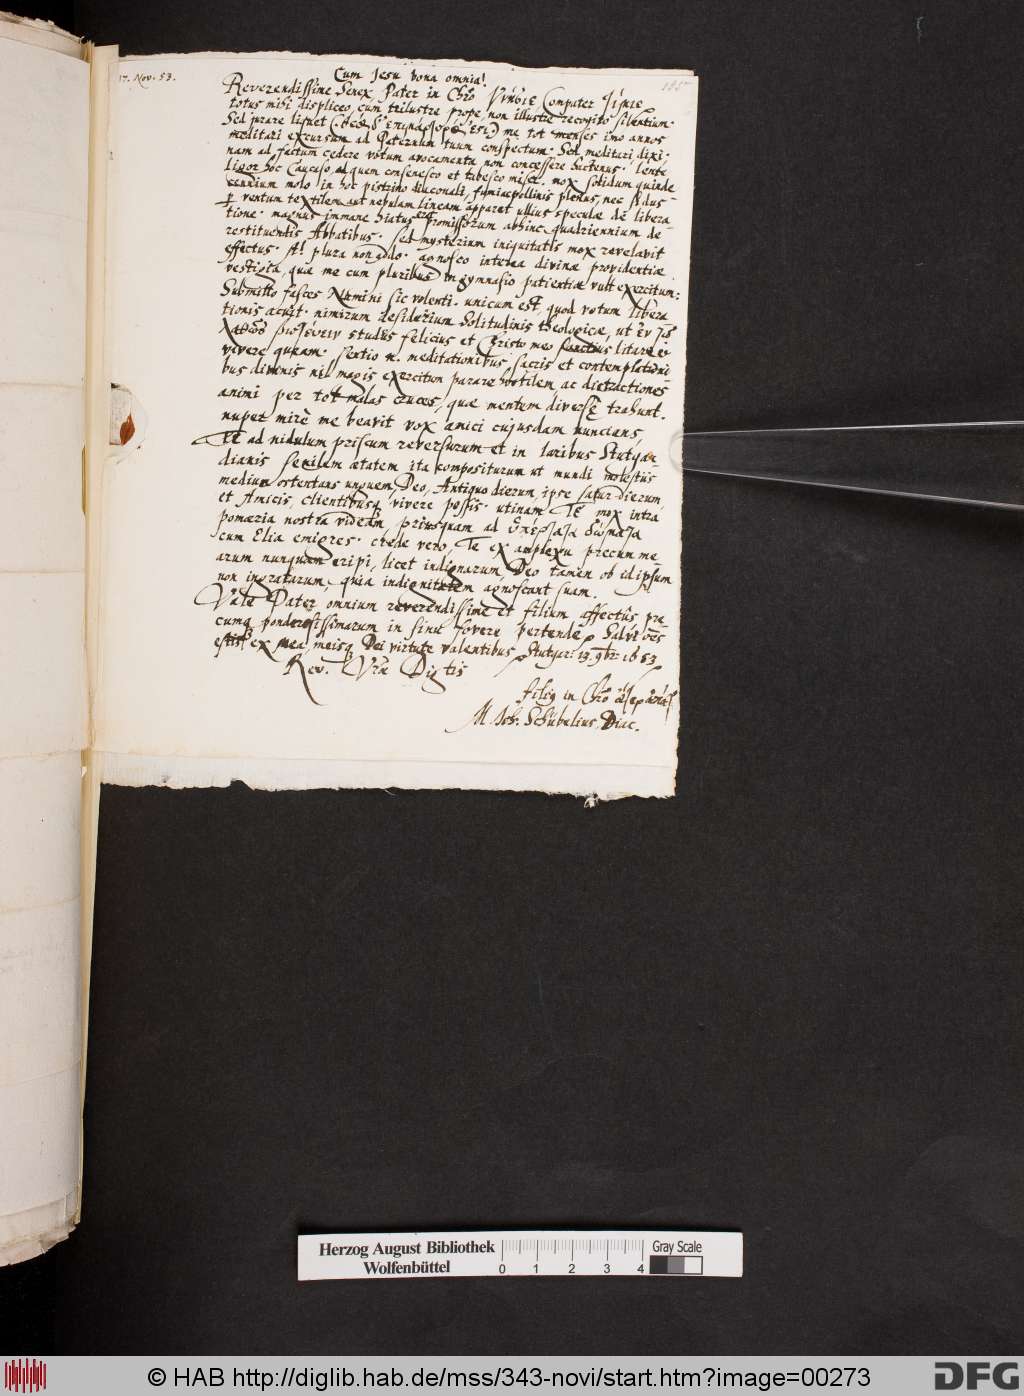 17. Nov. 53.
Cum Jesu bona omnia!
Reverendissime Senex Pater in Chro Compater
totus mihi displiceo, cum trilustre prope, non illustre recogito silentium.
Sed jurare liquet me tot menses imo annos
meditari excursum ad Paternum tuum conspectum. Sed meditari dixi.
nam ad factum cedere votum avocamenta non concessere hactenus. lente
ligor hoc Caucaso, ad quem consenesco et tabesco miser. mox solidum quinde
cennium molo in hoc pistrino diaconali, plenus, nec
ventum textilem aut nebulam lineam apparet ullius speculae de libera
tione. magnus immane hiatus erat promissorum abhinc quadriennium de
restituendis Abbatibus. Sed mysterium iniquitatis mox revelavit
effectus. At plura non addo. agnosco interea divinae providentiae
vestigia, quae me cum pluribus in gymnasio patientiae vult exercitum:
Submitto fasces Numini sic volenti. unicum est, quod votum libera
tionis acuit. nimirum desiderium Solitudinis theologicae, ut
studiis felicius et Christo meo litare et
vivere queam. sentio n. meditationibus sacris et contemplationi
bus divinis nil magis exercitum parare hostilem ac distractiones
animi per tot malas cruces, quae mentem diversè trahunt.
nuper mirè me beavit vox amici cujusdam nuncians,
Te ad nidulum priscum reversurum et in laribus Stutgar
dianis senilem aetatem ita compositurum ut mundi molestiis
medium ostentans unguem, Deo, Antiquo dierum, ipse satur dierum,
et Amicis, clientibusq vivere possis. utinam TE mox intra
pomaeria nostra videam, priusquam ad
cum Elia emigres. crede vero, Te ex amplexu precum me
arum nunquam eripi, licet indignarum, Deo tamen ob id ipsum
non ingratarum, quia indignitatem agnoscant suam.
Vale Pater omnium reverendissime et filium affectûs pre
cumq ponderosissimarum in sinu fovere pertende. Salvi
estis ex mea, meisq Dei virtute valentibus. Stutgar: 13. 9br: 1653.
Rev. Vrae Digtis
filig in Chro
M. Joh. Schübelius, Diac.
Herzog August Bibliothek
Wolfenbüttel
0 1 2 3 4
Gray Scale
© HAB http://diglib.hab.de/mss/343-novi/start.htm?image=00273
DFG